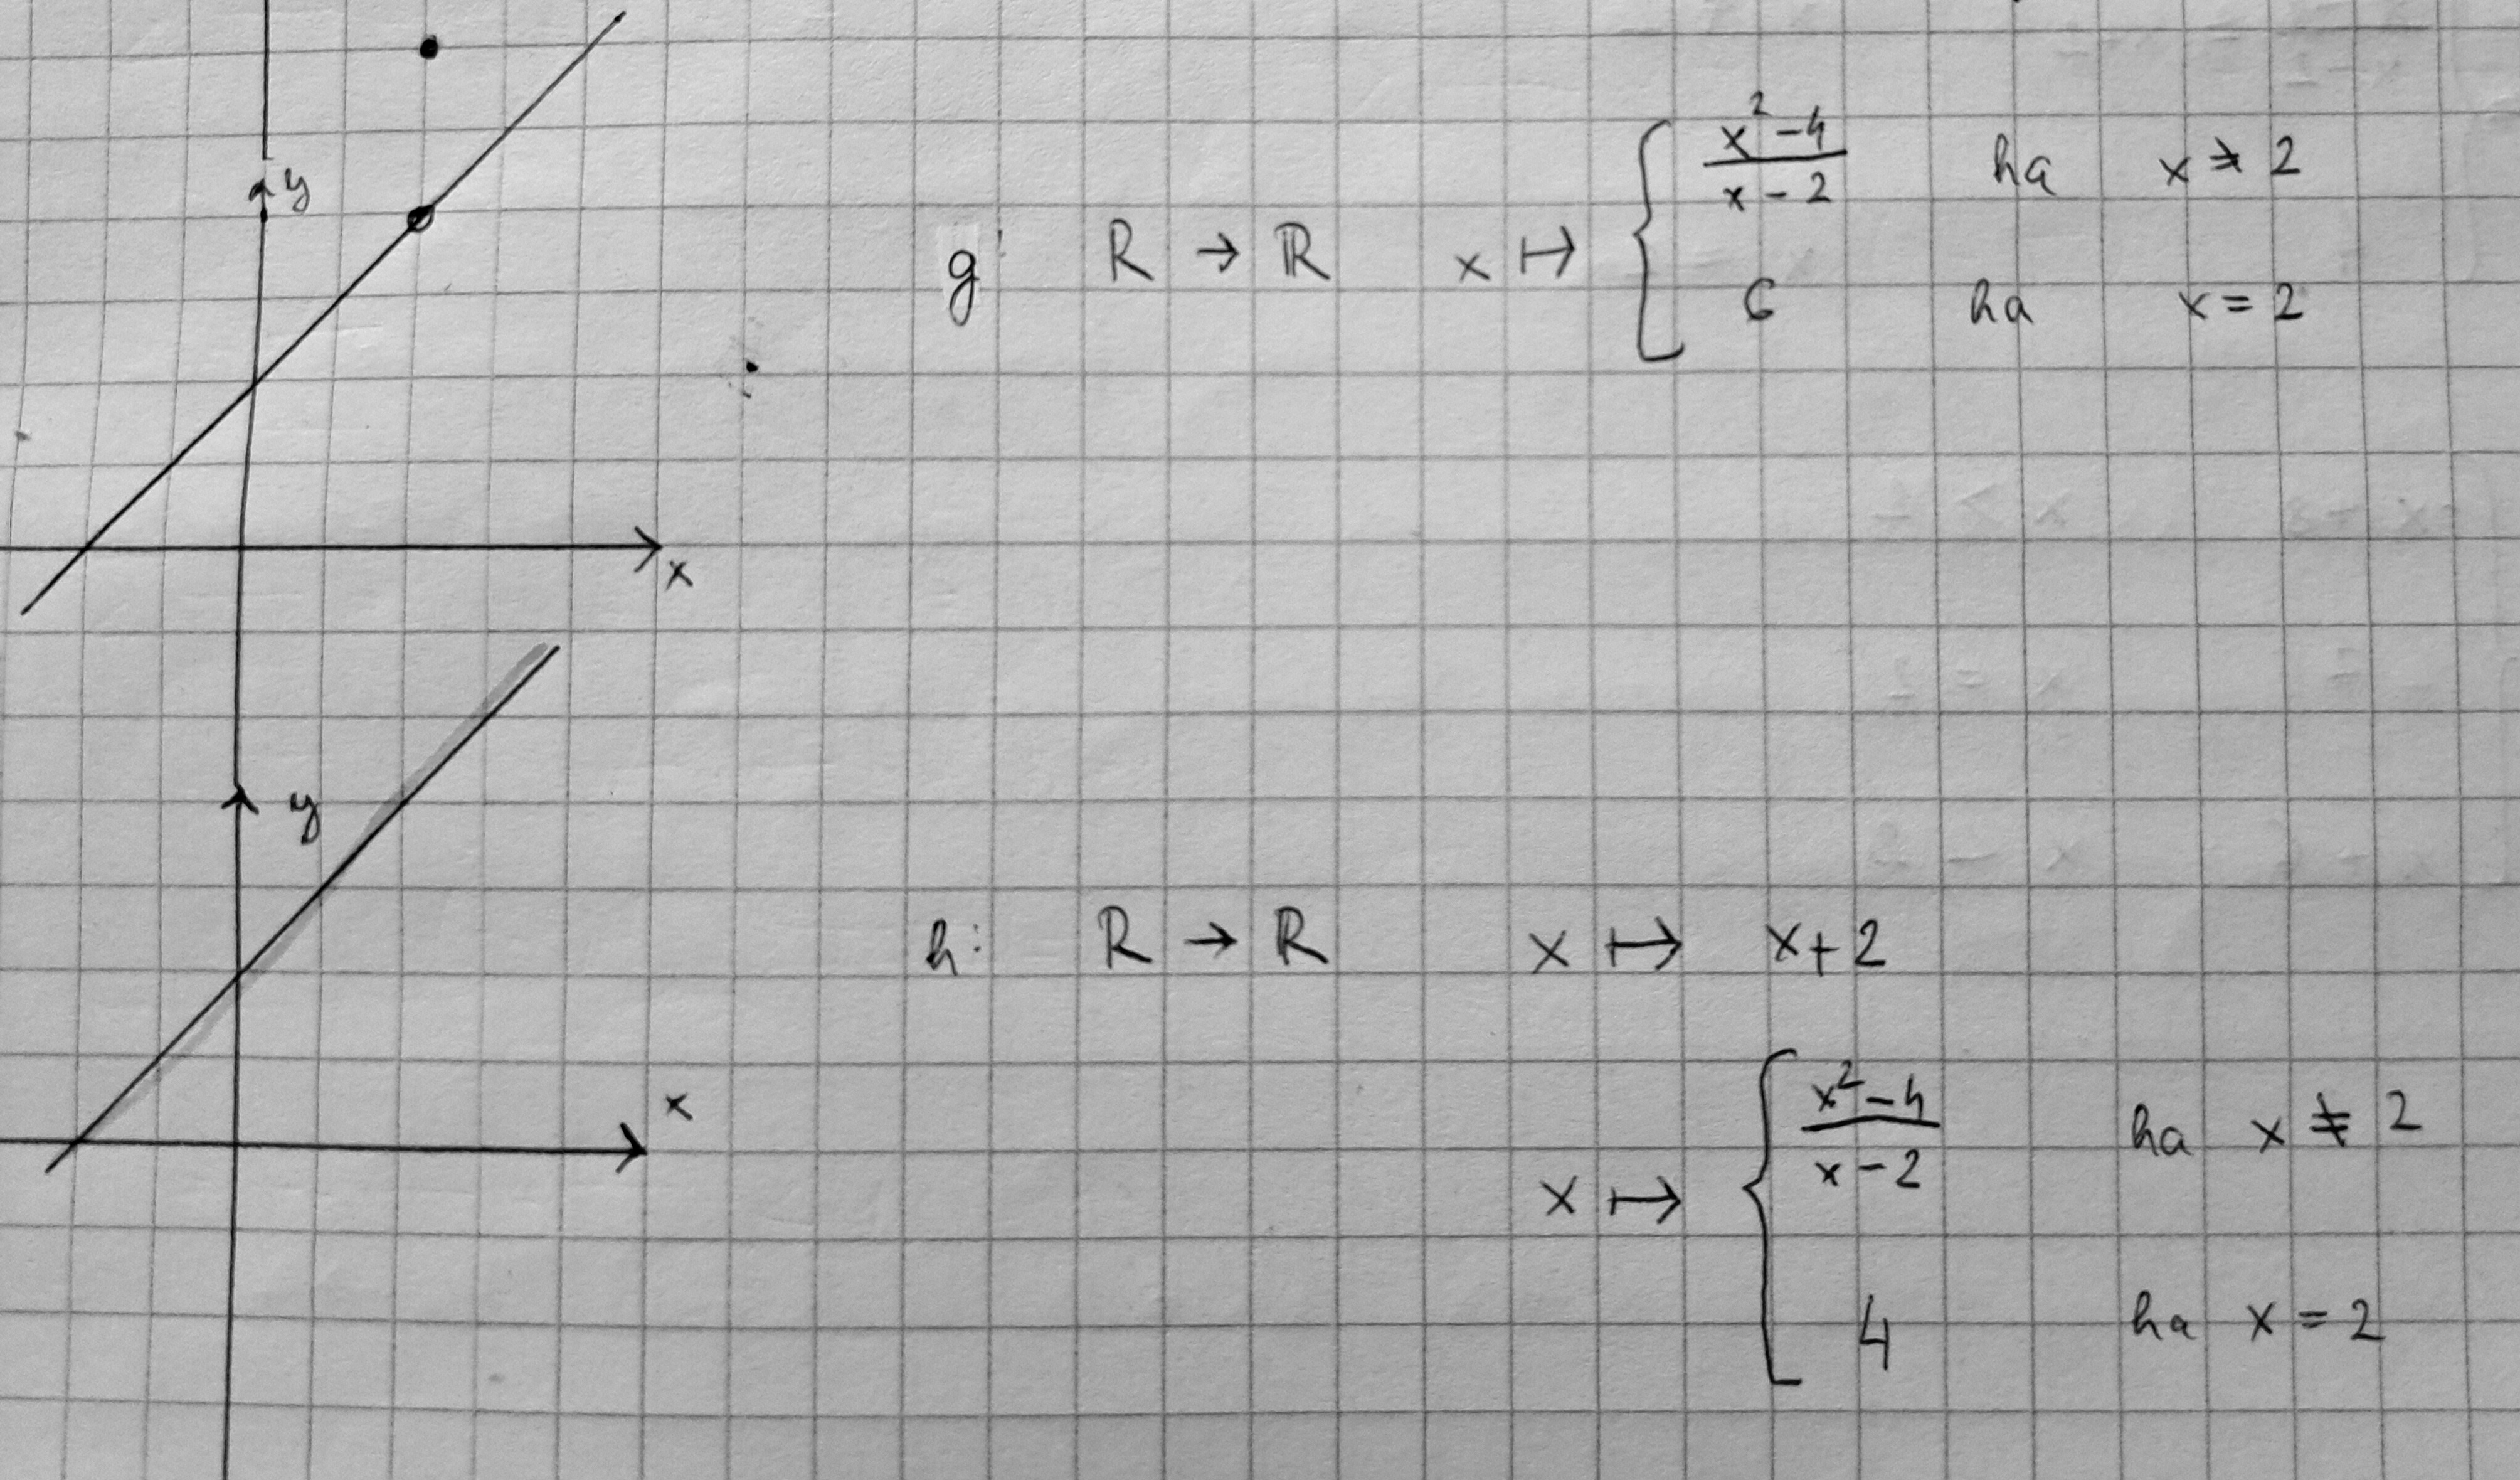 y
g: ℝ → ℝ x ↦ { (x² - 4)/(x - 2) ha x ≠ 2
6 ha x = 2
x
y
h: ℝ → ℝ x ↦ x + 2
x
x ↦ { (x² - 4)/(x - 2) ha x ≠ 2
4 ha x = 2